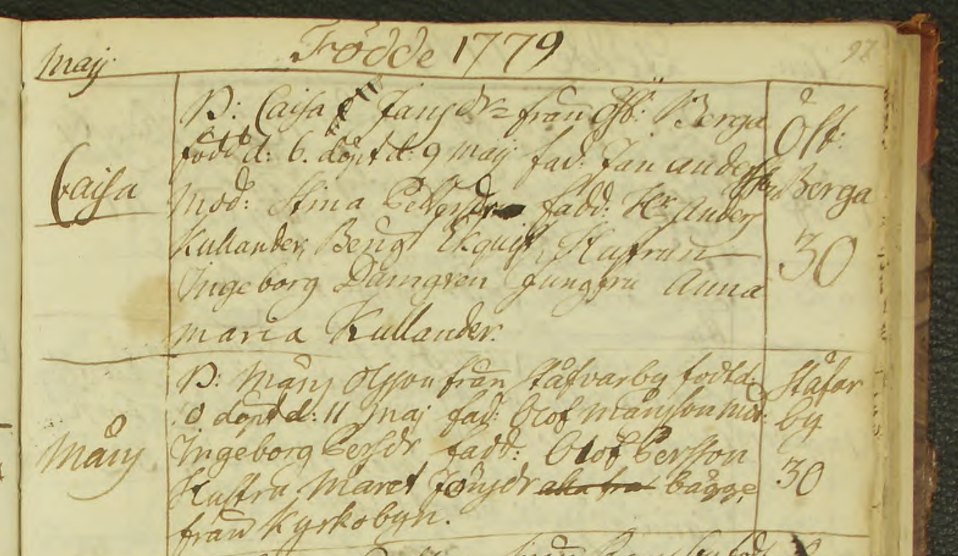 Maij Födde 1779 97
D: Caisa Jansdr från Ösb: Berga
född d: 6. döpt d: 9 Maij fad: Jan anders
Mod: Stina Pettersdr fadd: Hr Anders
Kullander, Bengt Ekquist, Hustrun
Ingeborg Damgren Jungfru Anna
Maria Kullander.
Caisa
Öst:
Berga
30
D: Måns Olsson från Ståfvarby född d:
8 döpt d: 11 Maj fad: Olof Månsson mod:
Ingeborg Persdr fadd: Olof Persson
Hustru Maret Jönsdr bägge
från Kyrkobyn.
Måns
Ståfar
by
30